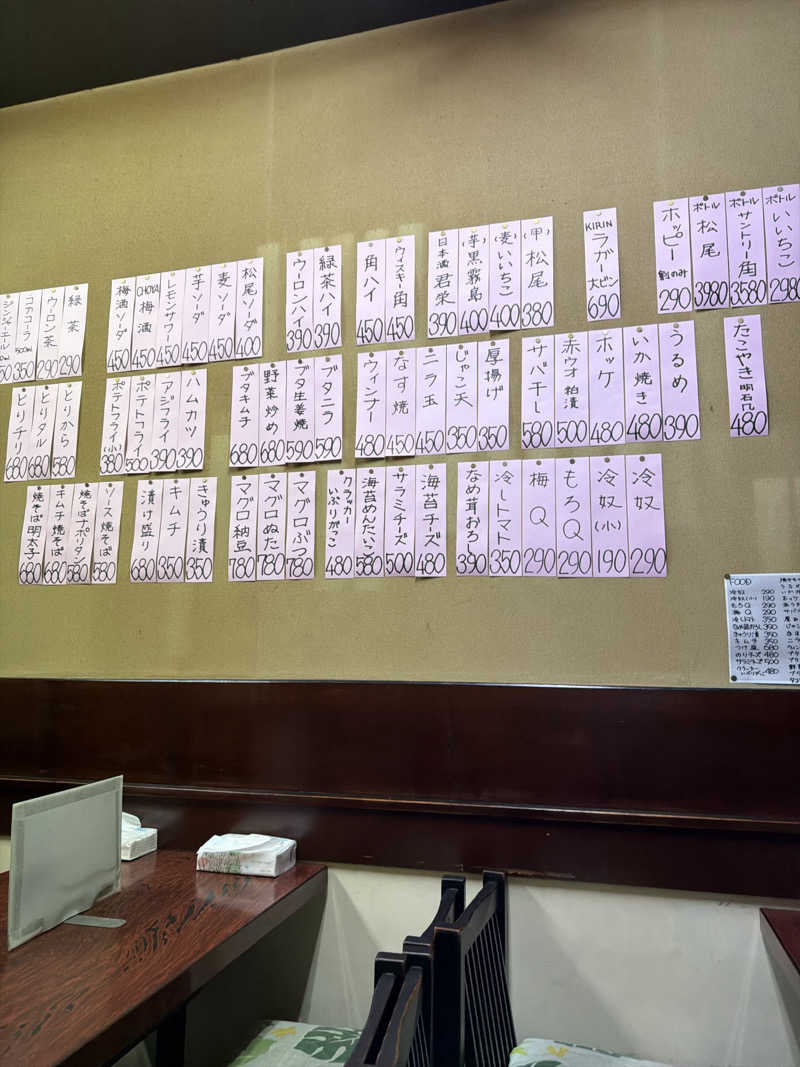 ボトル いいちこ 2980
ボトル サントリー角 3580
ボトル 松尾 3980
ホッピー 割のみ 290
KIRIN ラガー 大ビン 690
(甲) 松尾 380
(麦) いいちこ 400
(芋) 黒霧島 400
日本酒 君栄 390
ウィスキー 角 450
角ハイ 450
緑茶ハイ 390
ウーロンハイ 390
松尾ソーダ 400
麦ソーダ 450
芋ソーダ 450
レモンサワー 450
CHOYA 梅酒 450
梅酒ソーダ 450
緑茶 290
ウーロン茶 290
コカコーラ 500ml 350
ジンジャーエール 50
たこやき 明石 480
うるめ 390
いか焼き 480
ホッケ 480
赤ウオ 粕漬 500
サバ干し 580
厚揚げ 350
じゃこ天 350
ニラ玉 450
なす焼 450
ウィンナー 480
ブタニラ 590
ブタ生姜焼 590
野菜炒め 680
ブタキムチ 680
ハムカツ 390
アジフライ 390
ポテトフライ 500
ポテトフライ(小) 380
とりから 580
とりタル 680
とりチリ 680
冷奴 290
冷奴(小) 190
もろQ 290
梅Q 290
冷しトマト 350
なめ茸おろし 390
海苔チーズ 480
サラミチーズ 500
海苔めんたいこ 580
クラッカー いぶりがっこ 480
マグロぶつ 780
マグロぬた 780
マグロ納豆 780
きゅうり漬 350
キムチ 350
漬け盛り 680
ソース焼そば 580
焼そばナポリタン 580
キムチ焼そば 680
焼そば明太子 680
FOOD
冷奴 290
冷奴(小) 190
もろQ 290
梅Q 290
冷しトマト 350
なめ茸おろし 390
きゅうり漬 350
キムチ 350
つけ盛 680
のりチーズ 480
サラミチーズ 500
クラッカー いぶりがっこ 480